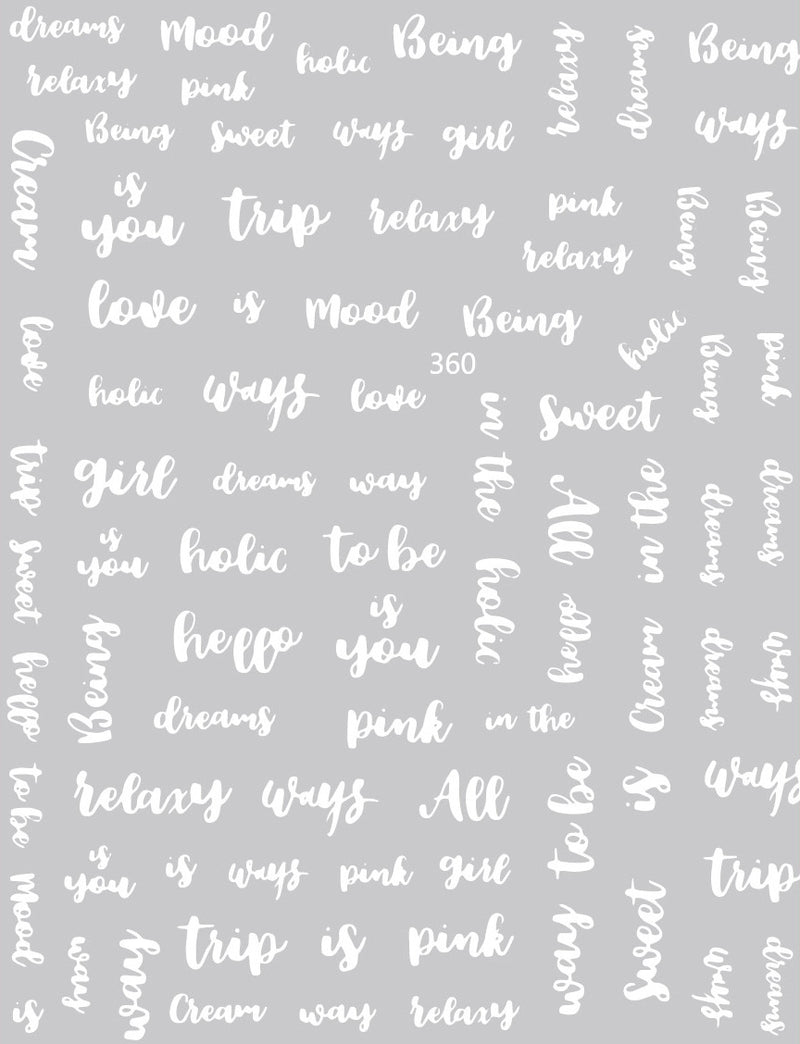 dreams Mood holic Being
relaxy pink
relaxy
dreams
Being
Being sweet ways girl
ways
Cream
is
you trip relaxy
pink
relaxy
Being
Being
love is Mood Being
holic
love
Being
pink
360
holic ways love
in the
sweet
girl dreams way
trip
All
in the
dreams
dreams
is
you holic to be
sweet
holic
hello
is
you
hello
hello
Being
Cream
dreams
ways
dreams pink in the
relaxy ways All
to be
way to be
is
ways
is
you is ways pink girl
Mood
sweet
trip
trip is pink
way
way
ways
dreams
is
Cream way relaxy